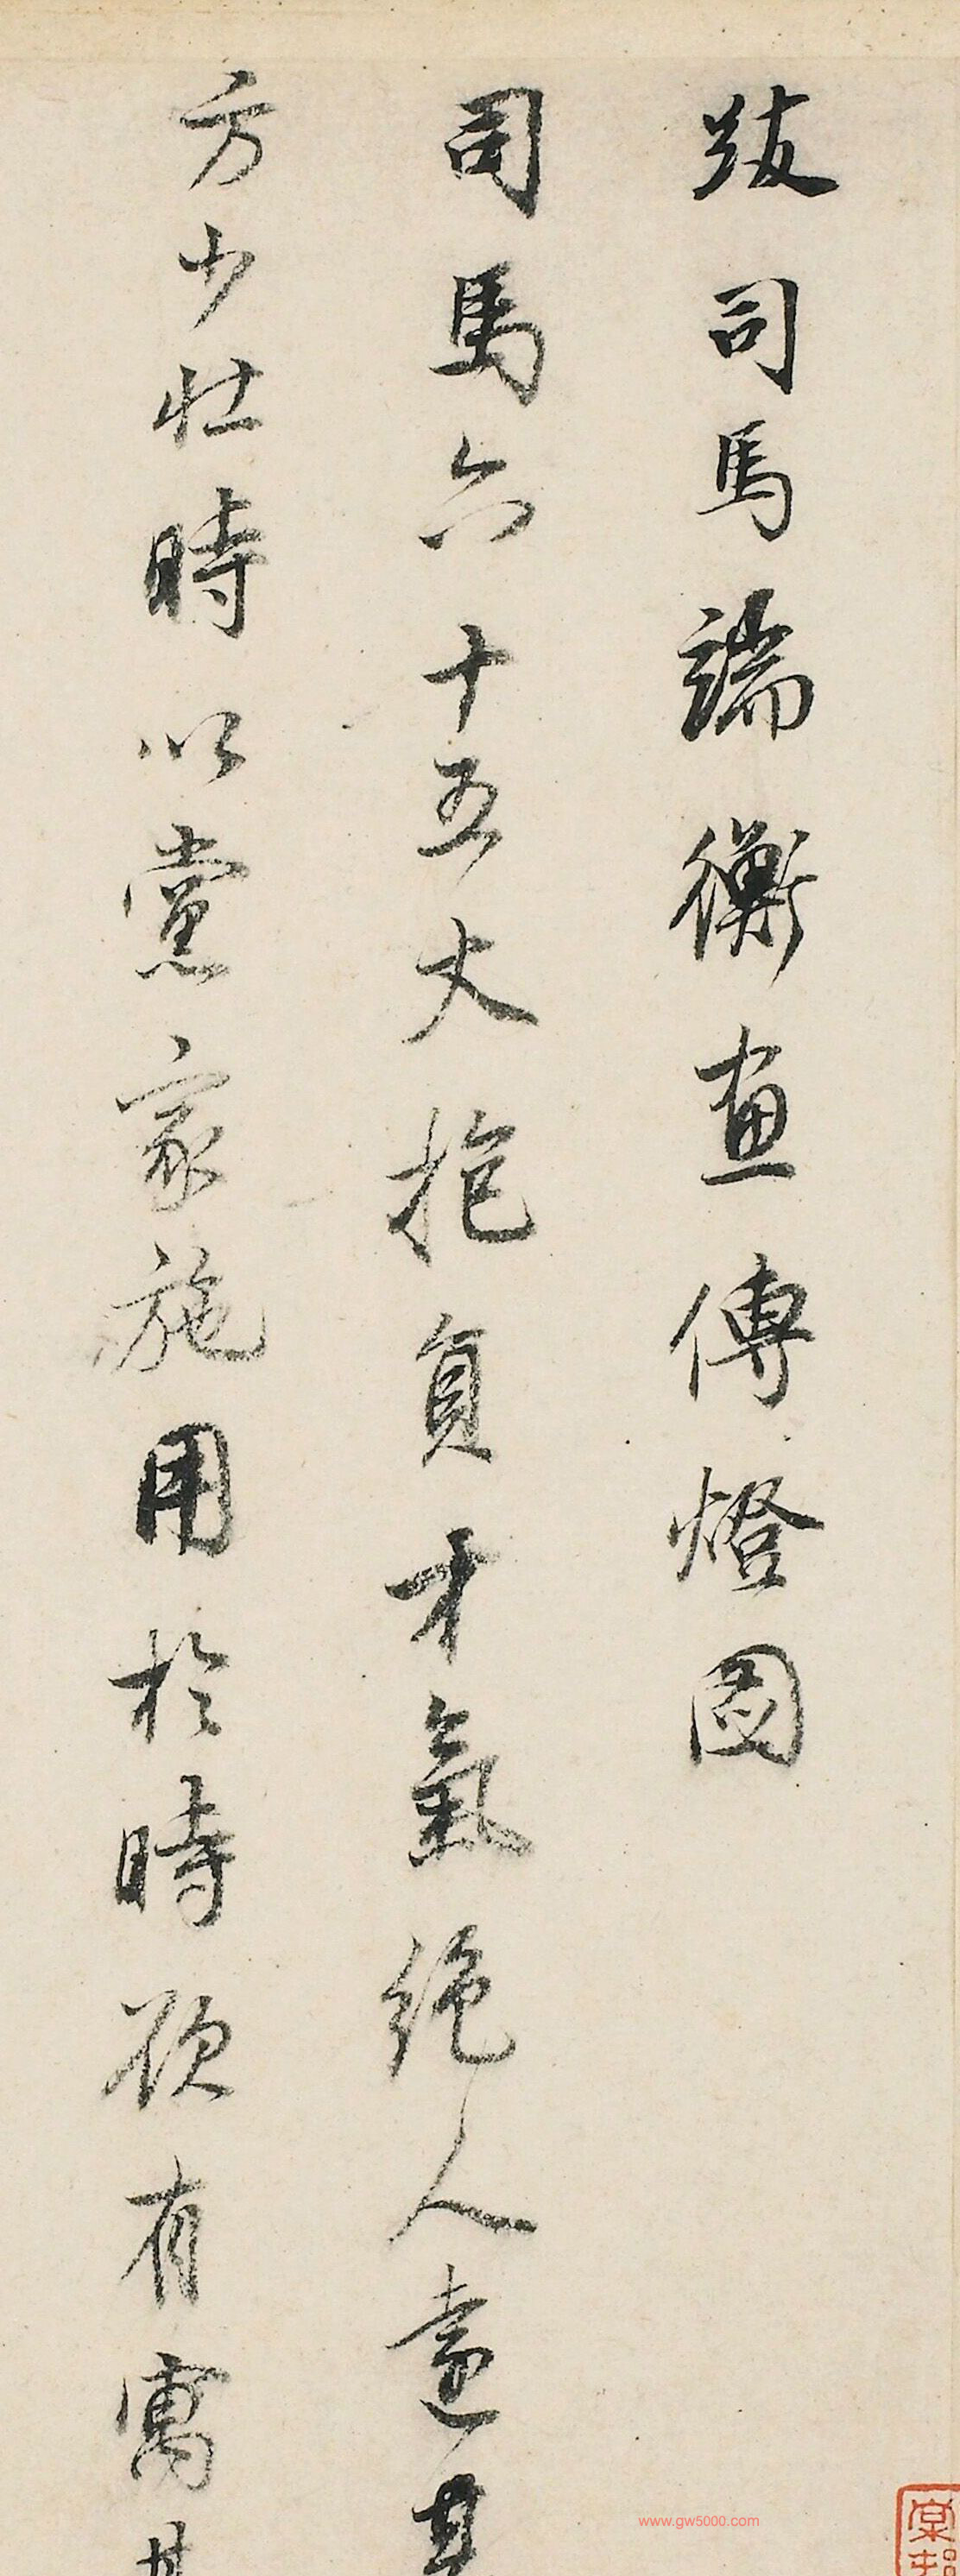 跋司馬端衡畫傳燈圖
司馬六十五丈抱負才氣絕人遠甚
方少壯時以黨家施用於時欲有寓其
www.gw5000.com